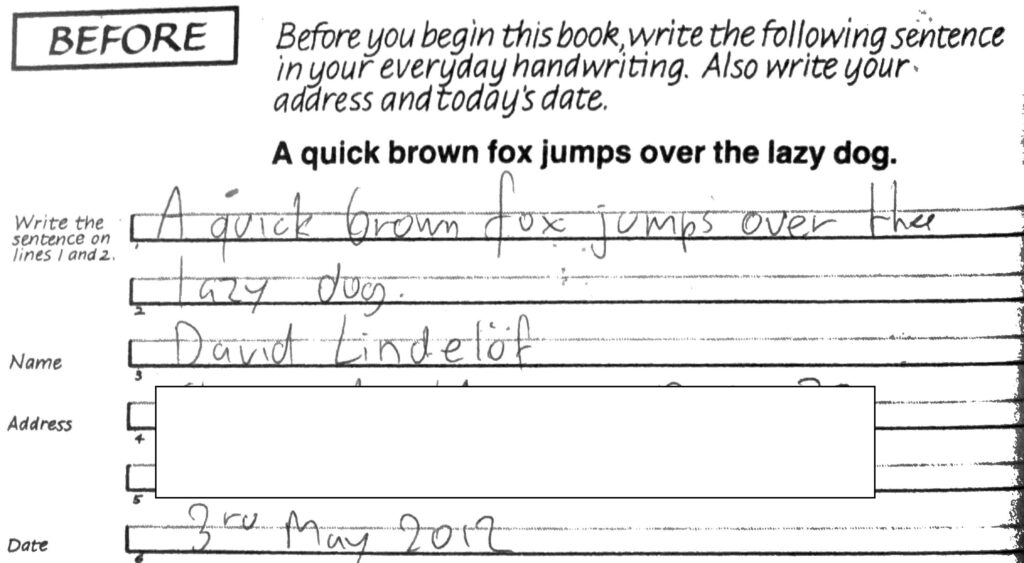 BEFORE
Before you begin this book, write the following sentence
in your everyday handwriting. Also write your
address and today's date.
A quick brown fox jumps over the lazy dog.
Write the
sentence on
lines 1 and 2.
1
A quick brown fox jumps over the
2
lazy dog.
Name
3
David Lindelöf
Address
4
5
Date
6
3rd May 2012